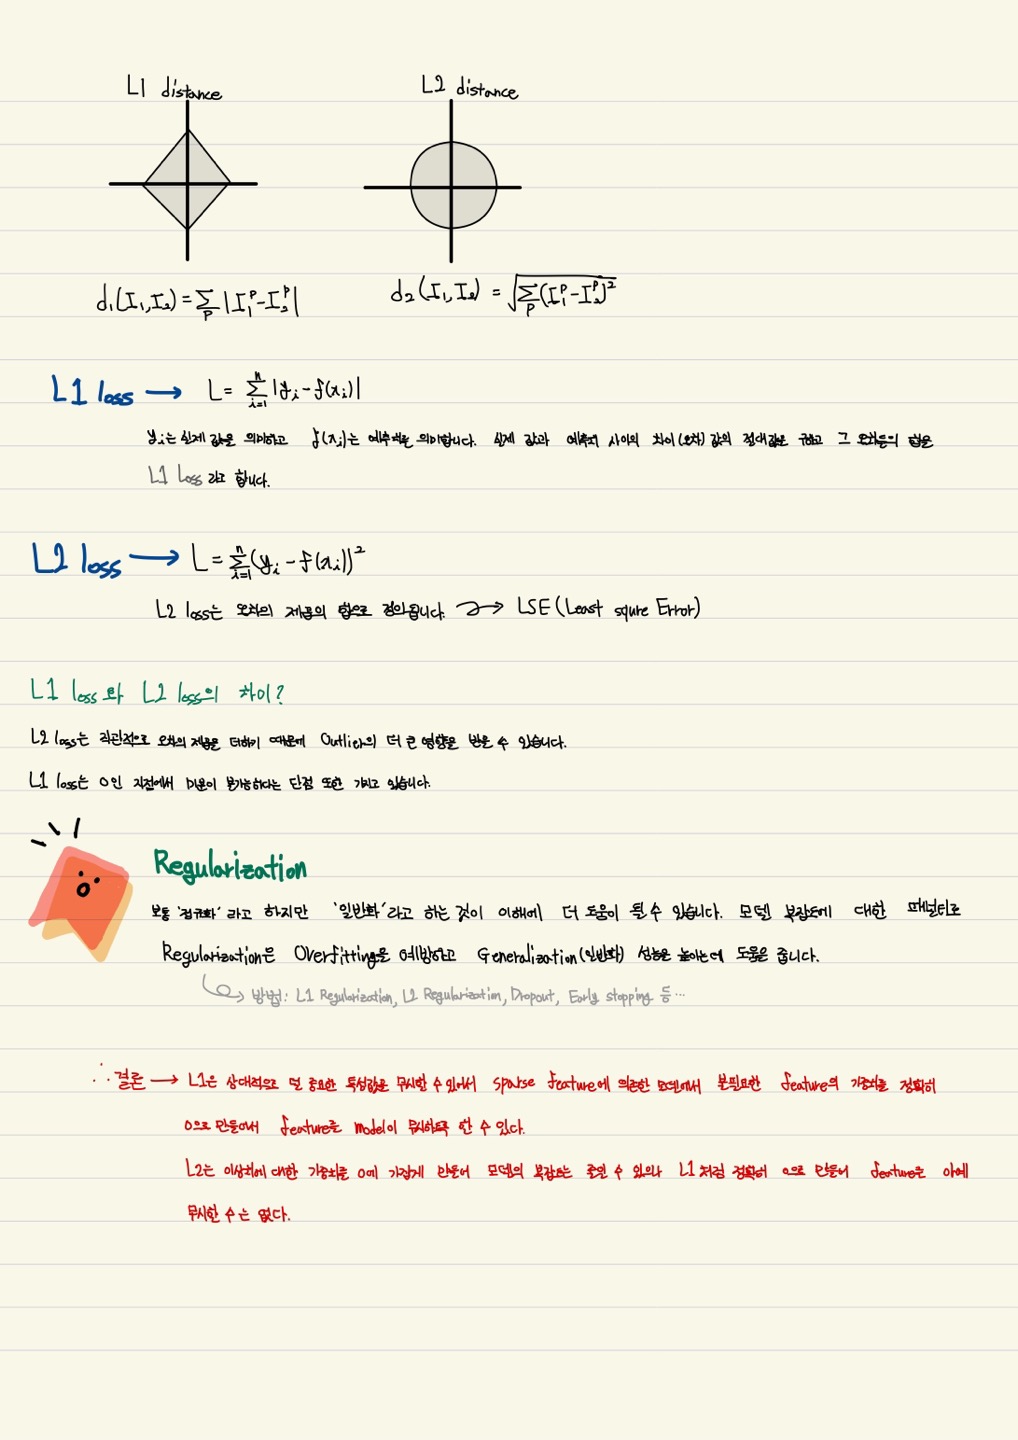 L1 distance
L2 distance
d₁(I₁,I₂) = ∑p |I₁ᵖ-I₂ᵖ|
d₂(I₁,I₂) = √∑p(I₁ᵖ-I₂ᵖ)²
L1 loss → L = ∑ⁿᵢ₌₁ |yᵢ - f(xᵢ)|
yᵢ는 실제 값을 의미하고 f(xᵢ)는 예측치를 의미합니다. 실제 값과 예측치 사이의 차이(오차) 값의 절대값을 구하고 그 오차들의 합을
L1 loss 라고 합니다.
L2 loss → L = ∑ⁿᵢ₌₁ (yᵢ - f(xᵢ))²
L2 loss는 오차의 제곱의 합으로 정의됩니다. → LSE (Least squre Error)
L1 loss 와 L2 loss의 차이?
L2 loss는 직관적으로 오차의 제곱을 더하기 때문에 Outlier의 더 큰 영향을 받을 수 있습니다.
L1 loss는 0인 지점에서 미분이 불가능하다는 단점 또한 가지고 있습니다.
Regularization
보통 '정규화' 라고 하지만 '일반화'라고 하는 것이 이해에 더 도움이 될 수 있습니다. 모델 복잡도에 대한 패널티로
Regularization은 Overfitting을 예방하고 Generalization(일반화) 성능을 높이는데 도움을 줍니다.
방법: L1 Regularization, L2 Regularization, Dropout, Early stopping 등…
∴ 결론 → L1은 상대적으로 덜 중요한 특성값을 무시할 수 있어서 sparse feature에 의존한 모델에서 불필요한 feature의 가중치를 정확히
0으로 만들어서 feature를 model이 무시하도록 할 수 있다.
L2는 이상치에 대한 가중치를 0에 가깝게 만들어 모델의 복잡도는 줄일 수 있으나 L1처럼 정확히 0으로 만들어 feature를 아예
무시할 수는 없다.